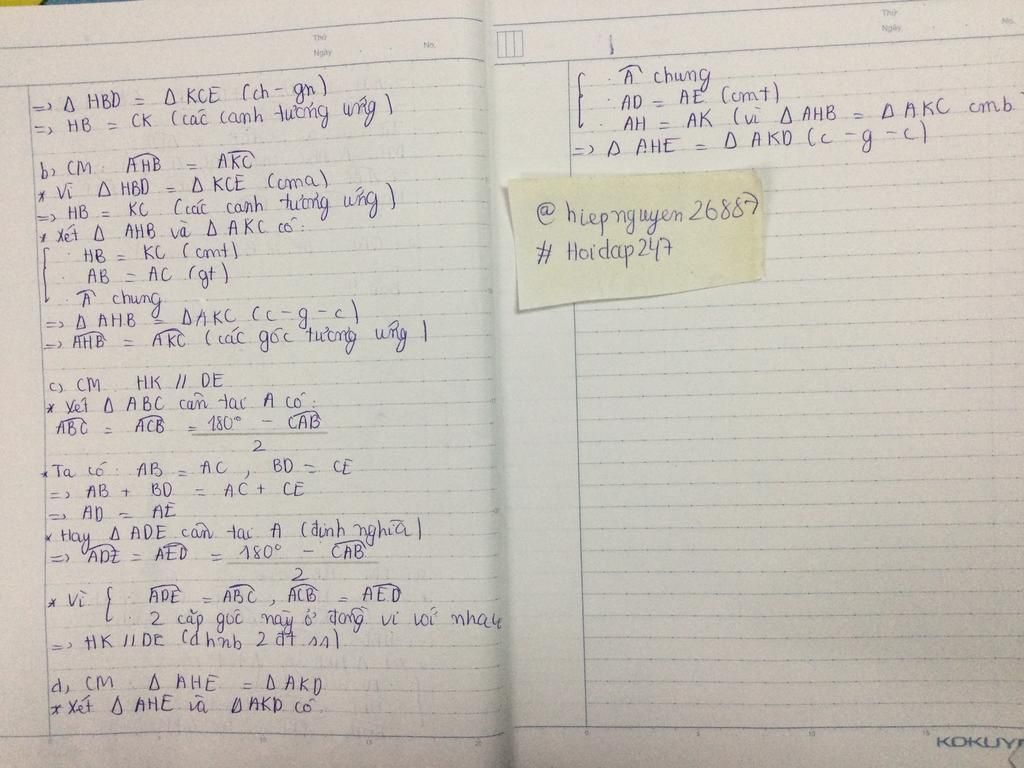 Thứ
Ngày
No.
=> Δ HBD = Δ KCE (ch - gn)
=> HB = CK (các cạnh tương ứng)
b, CM: AHB = AKC
* Vì Δ HBD = Δ KCE (cma)
=> HB = KC (các cạnh tương ứng)
* Xét Δ AHB và Δ AKC có:
HB = KC (cmt)
AB = AC (gt)
A chung
=> Δ AHB = Δ AKC (c-g-c)
=> AHB = AKC (các góc tương ứng)
c, CM HK // DE
* Xét Δ ABC cân tại A có:
ABC = ACB = 180° - CAB
2
* Ta có: AB = AC, BD = CE
=> AB + BD = AC + CE
=> AD = AE
* Hay Δ ADE cân tại A (định nghĩa)
=> ADE = AED = 180° - CAB
2
* Vì { ADE = ABC, ACB = AED
2 cặp góc này ở đồng vị với nhau
=> HK // DE (dhnb 2 đt //)
d, CM: Δ AHE = Δ AKD
* Xét Δ AHE và Δ AKD có
Thứ
Ngày
No.
A chung
AD = AE (cmt)
AH = AK (vì Δ AHB = Δ AKC cmb
=> Δ AHE = Δ AKD (c-g-c)
@hiepnguyen26887
# Hoidap247
KOKUY